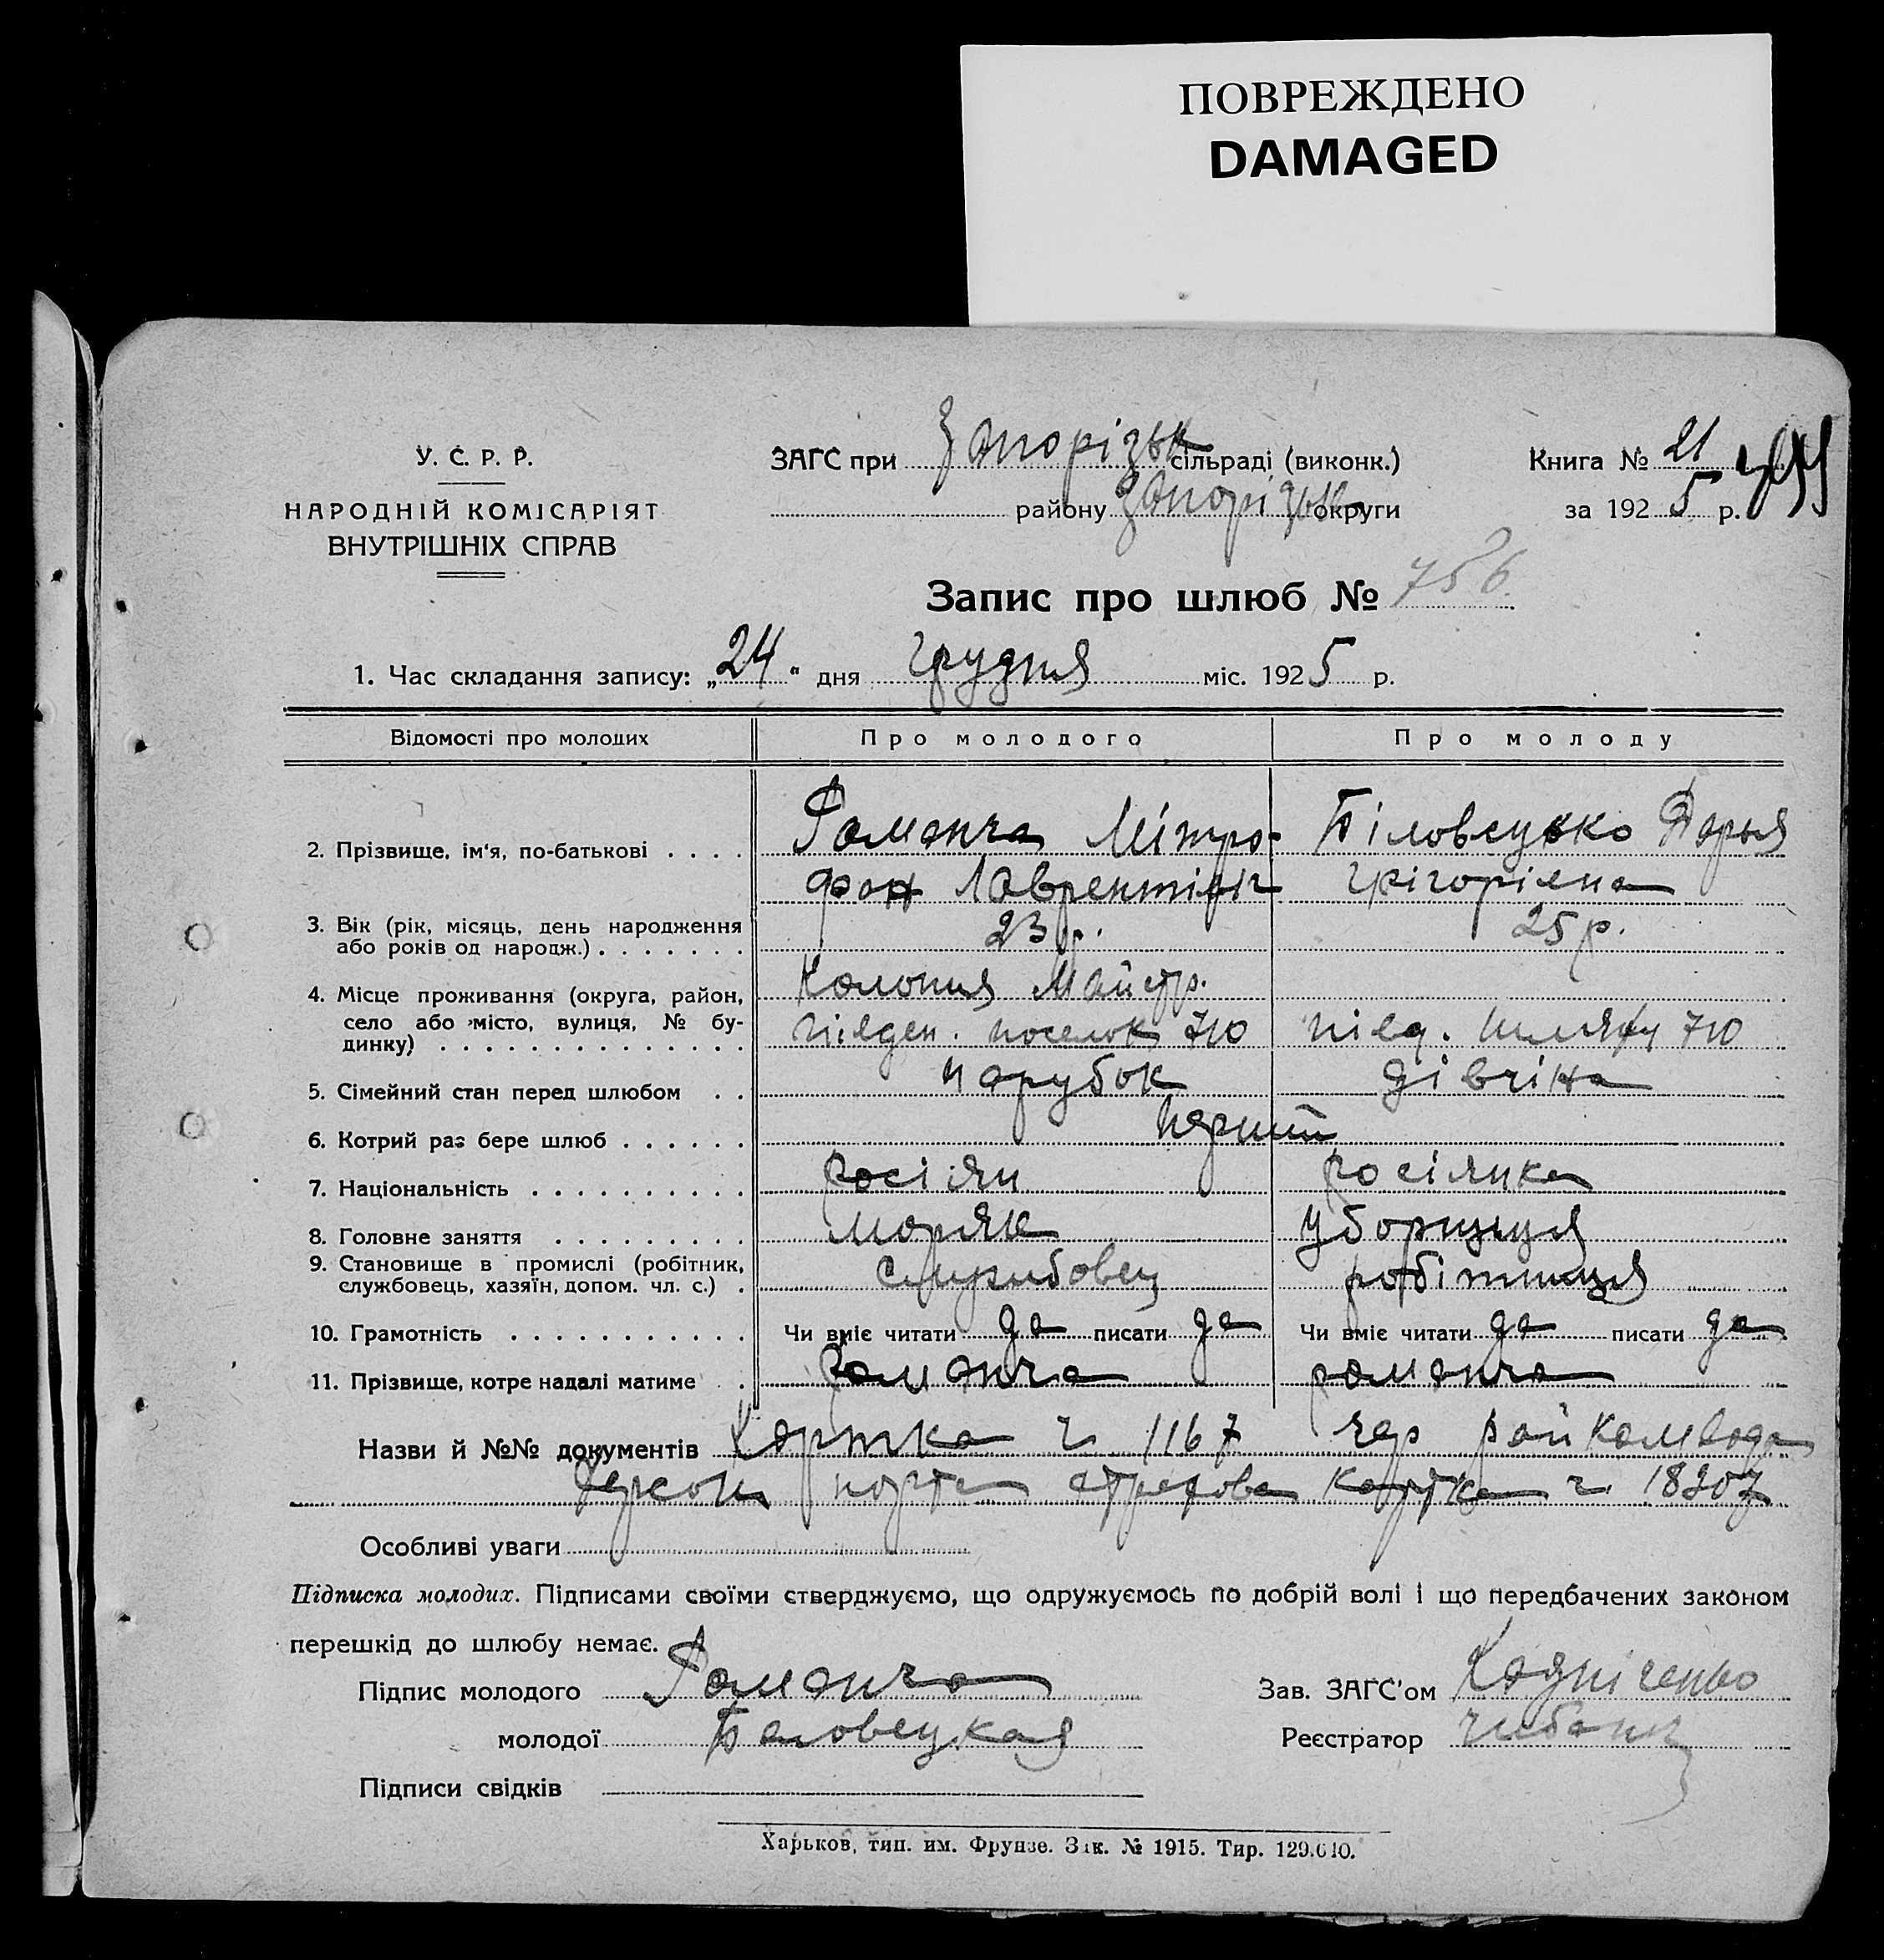 ПОВРЕЖДЕНО
DAMAGED
У. С. Р. Р.
НАРОДНІЙ КОМІСАРІЯТ
ВНУТРІШНІХ СПРАВ
ЗАГС при Запорізьк сільраді (виконк.)
району Запорізьк округи
Книга № 21
за 1925 р.
Запис про шлюб № 756.
1. Час складання запису: „24" дня грудня міс. 1925 р.
Відомості про молодих Про молодого Про молоду
2. Прізвище, ім'я, по-батькові . . . . Романча Мітро- Біловецько Дарья
фан Лаврентієвіч Грігорієвна
3. Вік (рік, місяць, день народження
або років од народж.) . . . . . . . 23 р. 25 р.
4. Місце проживання (округа, район, Колонія
село або місто, вулиця, № бу-
динку) . . . . . . . . . . . . . . Півден. поселок 710 півд. 710
5. Сімейний стан перед шлюбом . . парубок дівчіна
6. Котрий раз бере шлюб . . . . . . перший
7. Національність . . . . . . . . . . росіян росіянка
8. Головне заняття . . . . . . . . . моряк уборщиця
9. Становище в промислі (робітник,
службовець, хазяїн, допом. чл. с.) . службовец робітниця
10. Грамотність . . . . . . . . . . . Чи вміє читати да писати да Чи вміє читати да писати да
11. Прізвище, котре надалі матиме . . Романча романча
Назви й №№ документів Картка ч 1167 чер райкомвода
Херсон порта страхова картка ч. 18307
Особливі уваги
Підписка молодих. Підписами своїми стверджуємо, що одружуємось по добрій волі і що передбачених законом
перешкід до шлюбу немає.
Підпис молодого Романча
Зав. ЗАГС'ом
молодої Беловецкая
Реєстратор
Підписи свідків
Харьков, тип. им. Фрунзе. Зак. № 1915. Тир. 129.000.